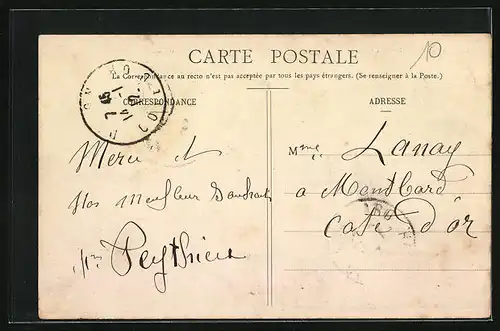 10
CARTE POSTALE
La Correspondance au recto n'est pas acceptée par tous les pays étrangers. (Se renseigner à la Poste.)
CORRESPONDANCE
ADRESSE
Merci
Nos meilleur Souhait
Mme Lanay
a Montbard
Cote d'or